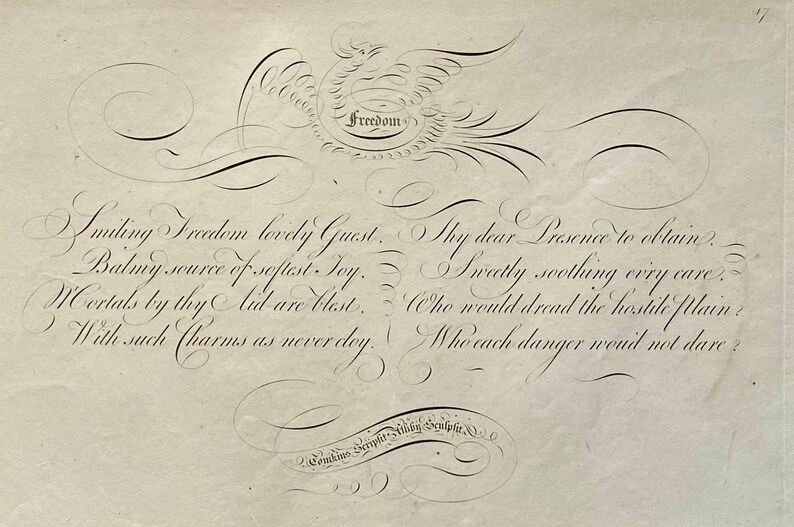 17
Freedom
Smiling Freedom lovely Guest.
Balmy source of softest Joy.
Mortals by thy Aid are blest.
With such Charms as never cloy.
Thy dear Presence to obtain.
Sweetly soothing ev'ry care.
Who would dread the hostile Plain?
Who each danger wou'd not dare?
Tomkins Scripsit. Ashby Sculpsit.